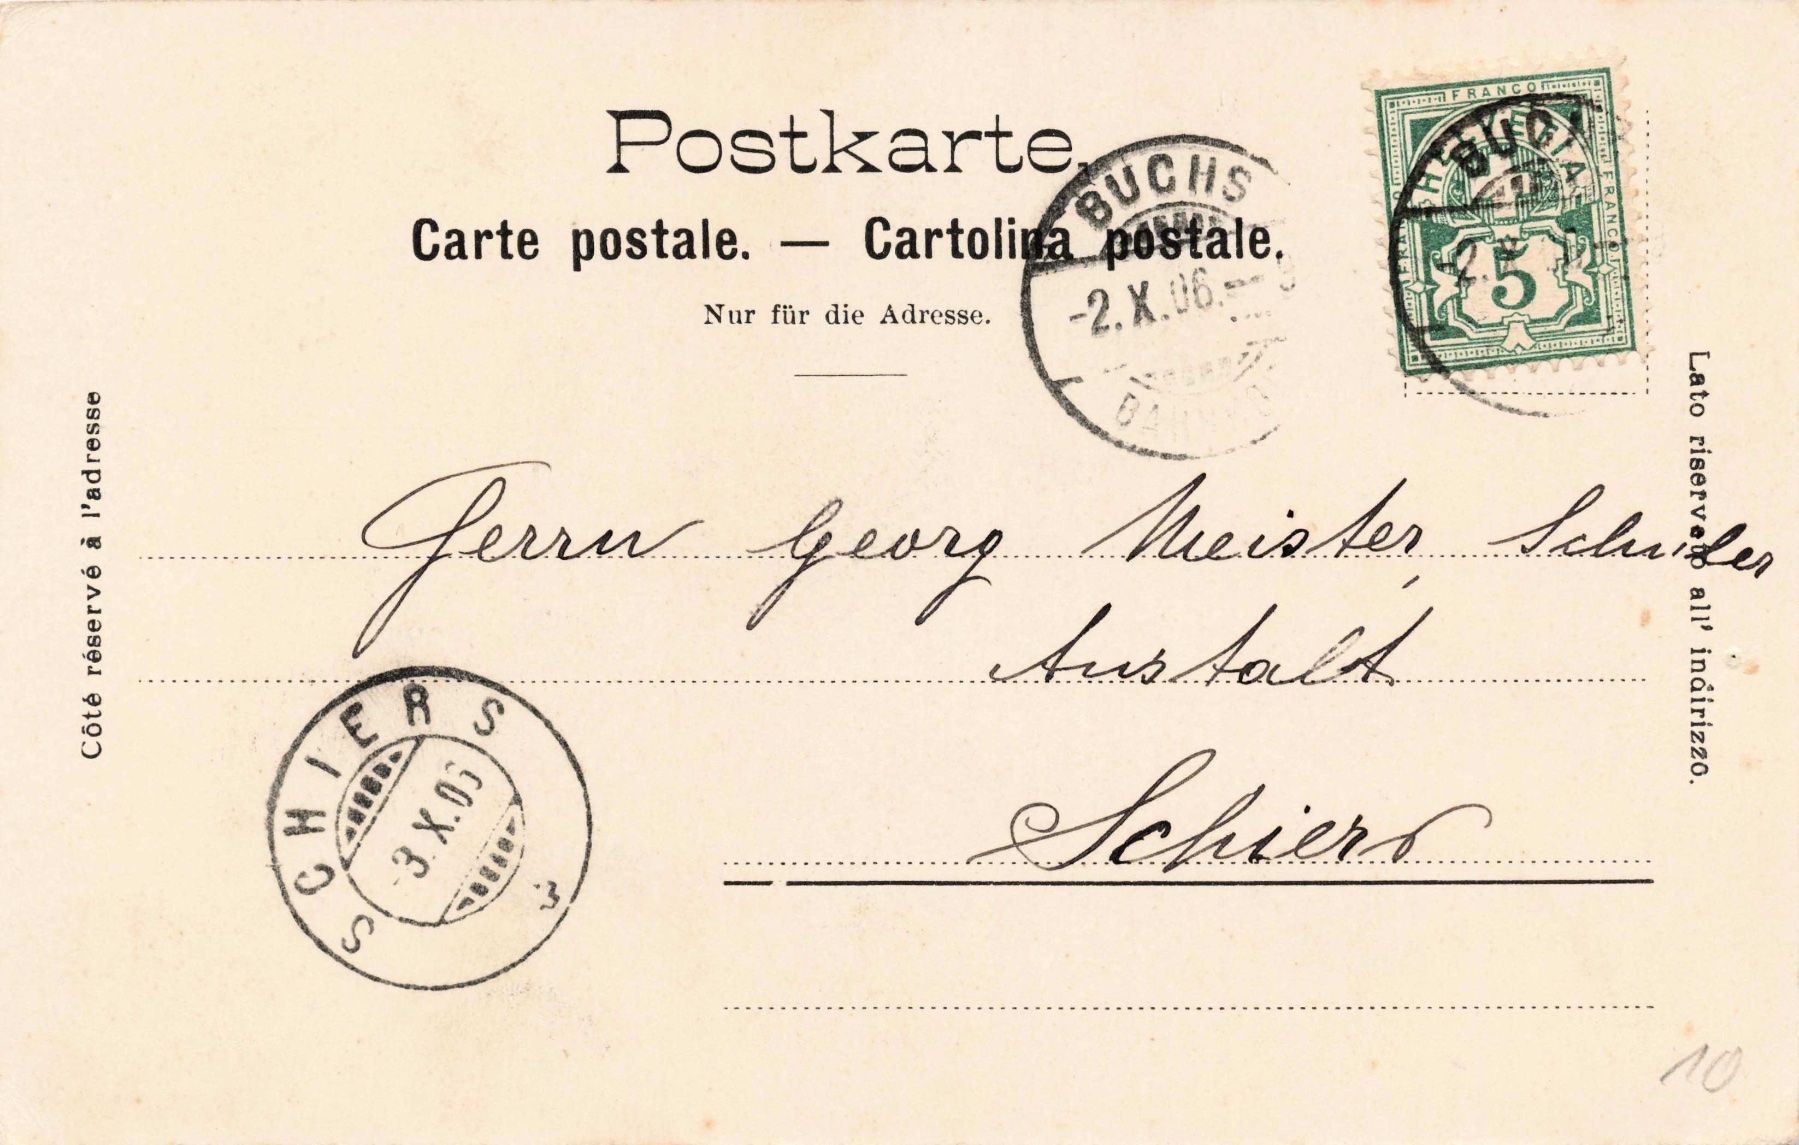 Postkarte.
Carte postale. — Cartolina postale.
Nur für die Adresse.
BUCHS
-2.X.06.
FRANCO
HELVETIA
FRANCO
5
BUCHS
-2.X
Côté réservé à l'adresse
Lato riservato all' indirizzo.
Herrn Georg Meister, Schüler
Anstalt
Schiers
SCHIERS
-3.X.06
10